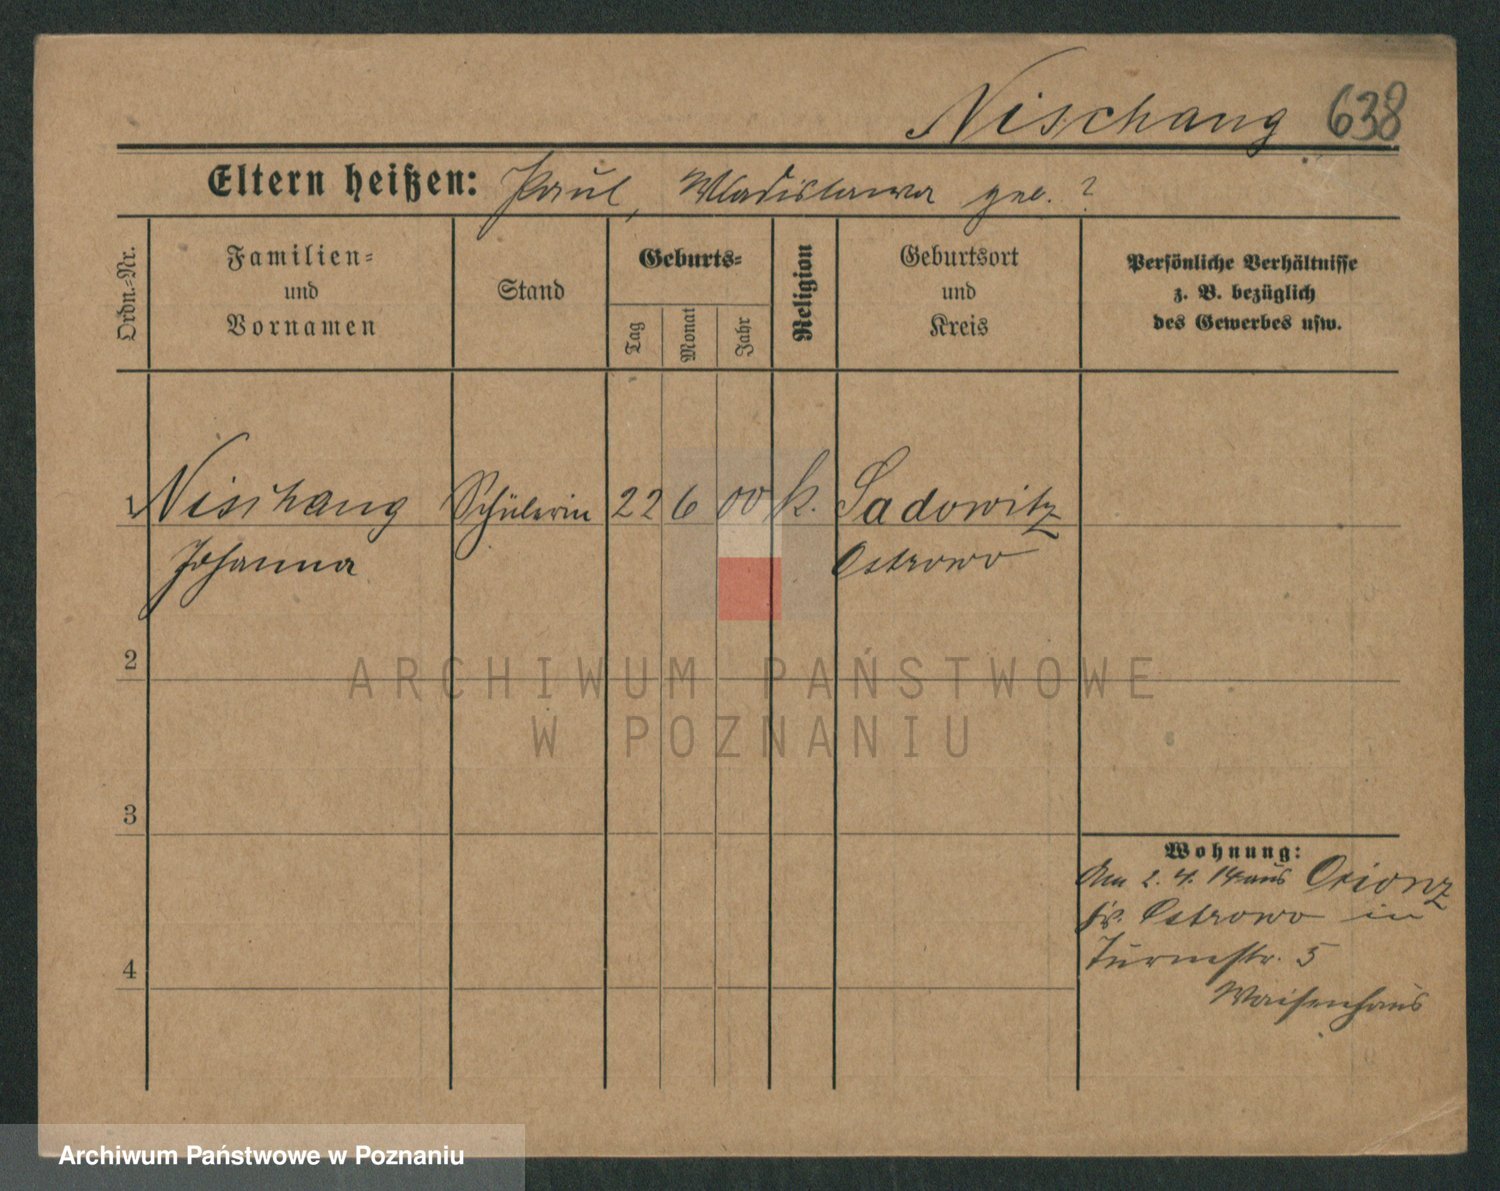 Nischang 638
Eltern heißen: Paul, Wladislawa geb. ?
Ordn.=Nr.
Familien=
und
Vornamen
Stand
Geburts=
Tag
Monat
Jahr
Religion
Geburtsort
und
Kreis
Persönliche Verhältnisse
z. B. bezüglich
des Gewerbes usw.
1 Nischang Schülerin 22 6 00 k. Sadowitz
Johanna Ostrowo
2
ARCHIWUM PAŃSTWOWE
W POZNANIU
3
Wohnung:
Am 2. 4. 14 aus
Kr. Ostrowo in
Turmstr. 5
4
Waisenhaus
Archiwum Państwowe w Poznaniu